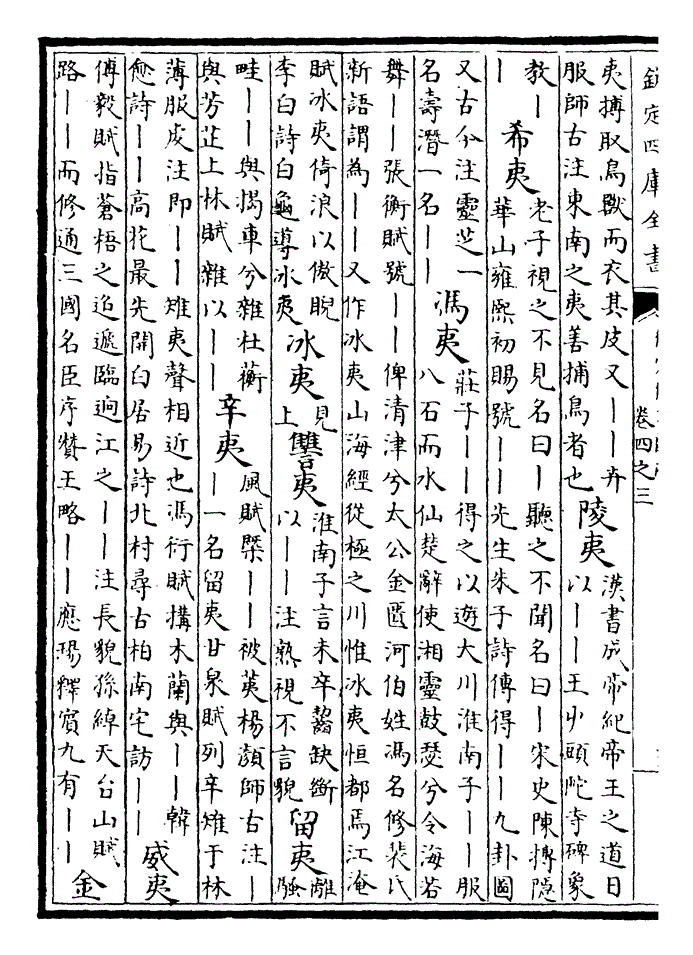 欽定四庫全書
卷四之三
夷搏取鳥獸而衣其皮又丨丨卉
服師古注東南之夷善捕鳥者也
陵夷
漢書成帝紀帝王之道日
以丨丨王屮頭陀寺碑象
教丨
丨
希夷
老子視之不見名曰丨聽之不聞名曰丨宋史陳摶隱
華山雍熙初賜號丨丨先生朱子詩傳得丨丨九卦圖
又古今注靈芝一
名壽潛一名丨丨
馮夷
莊子丨丨得之以遊大川淮南子丨丨服
八石而水仙楚辭使湘靈鼓瑟兮令海若
舞丨丨張衡賦號丨丨俾清津兮太公金匱河伯姓馮名修裴氏
新語謂為丨丨又作冰夷山海經從極之川惟冰夷恒都焉江淹
賦冰夷倚浪以傲睨
李白詩白龜導冰夷
冰夷
見
上
讐夷
淮南子言未卒齧缺斷
以丨丨注熟視不言貌
留夷
離
騷
畦丨丨與揭車兮雜杜蘅
與芳芷上林賦雜以丨丨
辛夷
風賦槩丨丨被荑楊顏師古注丨
丨一名留夷甘泉賦列辛雉于林
薄服虔注即丨丨雉夷聲相近也馮衍賦搆木蘭與丨丨韓
愈詩丨丨高花最先開白居易詩北村尋古柏南宅訪丨丨
威夷
傅毅賦指蒼梧之迢遞臨迥江之丨丨注長貌孫綽天台山賦
路丨丨而修通三國名臣序贊王略丨丨應瑒釋賓九有丨丨
金